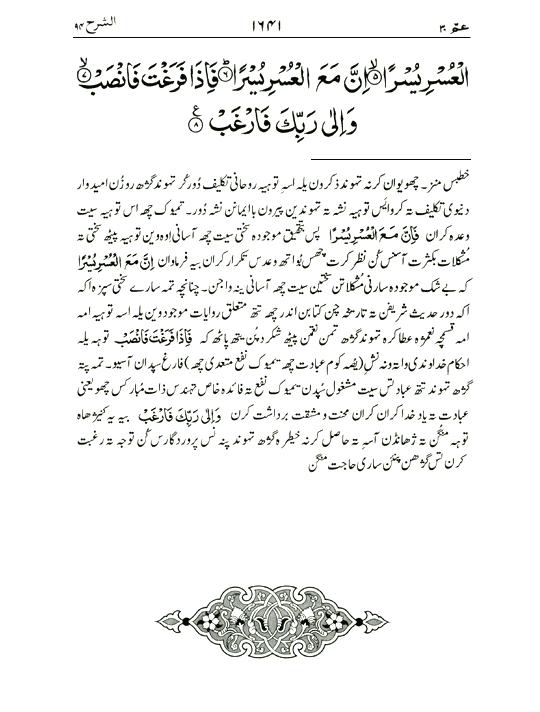 عمّ ٣٠ ١٦٤١ الشرح ٩٤
الْعُسْرِ يُسْرًا ۝٥ اِنَّ مَعَ الْعُسْرِ يُسْرًا ۝٦ فَاِذَا فَرَغْتَ فَانْصَبْ ۝٧
وَاِلٰى رَبِّكَ فَارْغَبْ ۝٨
خطبس منز۔ چھویوان کرنہ تہوند ذکر ون یلہ اسہِ توہیہ روحانی تکلیف دُور کٔر تہوند گژھ روزُن امیدوار
دنیوی تکلیف تہ کروایٔس توہیہ نشہ تہ تہوندین پیرون با ایمانن نشہ دُور۔ تمیوک چھہ اس توہیہ سیت
وعدہ کران فَاِنَّ مَعَ الْعُسْرِ يُسْرًا پس تحقیق موجودہ سختی سیت چھہ آسانی اوہ وین توہیہ پیٹھ سختی تہ
مشکلات بکثرت آسنس کُن نظر کرت چھس یُواتھ وعدس تکرار کران بیہ فرماوان اِنَّ مَعَ الْعُسْرِ يُسْرًا
کہ بے شک موجودہ سارنی مُشکلاتن تہ سختین سیت چھہ آسانی ینہ واجن۔ چنانچہ تمہ سارے سختی سپزہ اکہ
اکہ دور حدیث شریفن تہ تاریخہ چن کتابن اندر چھہ تتھ متعلق روایات موجود وین یلہ اسہ توہیہ امہ
امہ قسمچہ نعمژہ عطا کرہ تہوند گژھ تمن نعمتن پیٹھ شکر دمُن یتھ پاٹھ کہ فَاِذَا فَرَغْتَ فَانْصَبْ توہہ یلہ
احکام خداوندی واتہ ونہ نشِ (یُصہ کوم عبادت چھہ یمیوک نفع متعدی چھہ) فارغ سپدان آسیو۔ تمہ پتہ
گژھ تہوند تتھ عبادتس سیت مشغول سُپدن یمیوک نفع تہ فائدہ خاص تہندس ذات مُبارکس چھو یعنی
عبادت تہ یاد خدا کران کران محنت و مشقت برداشت کرن وَاِلٰى رَبِّكَ فَارْغَبْ بیہ یہ کینژھاہ
توہہ منگُن تہ ژھانڈن آسہِ تہ حاصل کرنہ خیطرہ گژھ تہوند پنہ نس پروردگارس کُن توجہ تہ رغبت
کرن تس گژھن پننِ ساری حاجت منگن